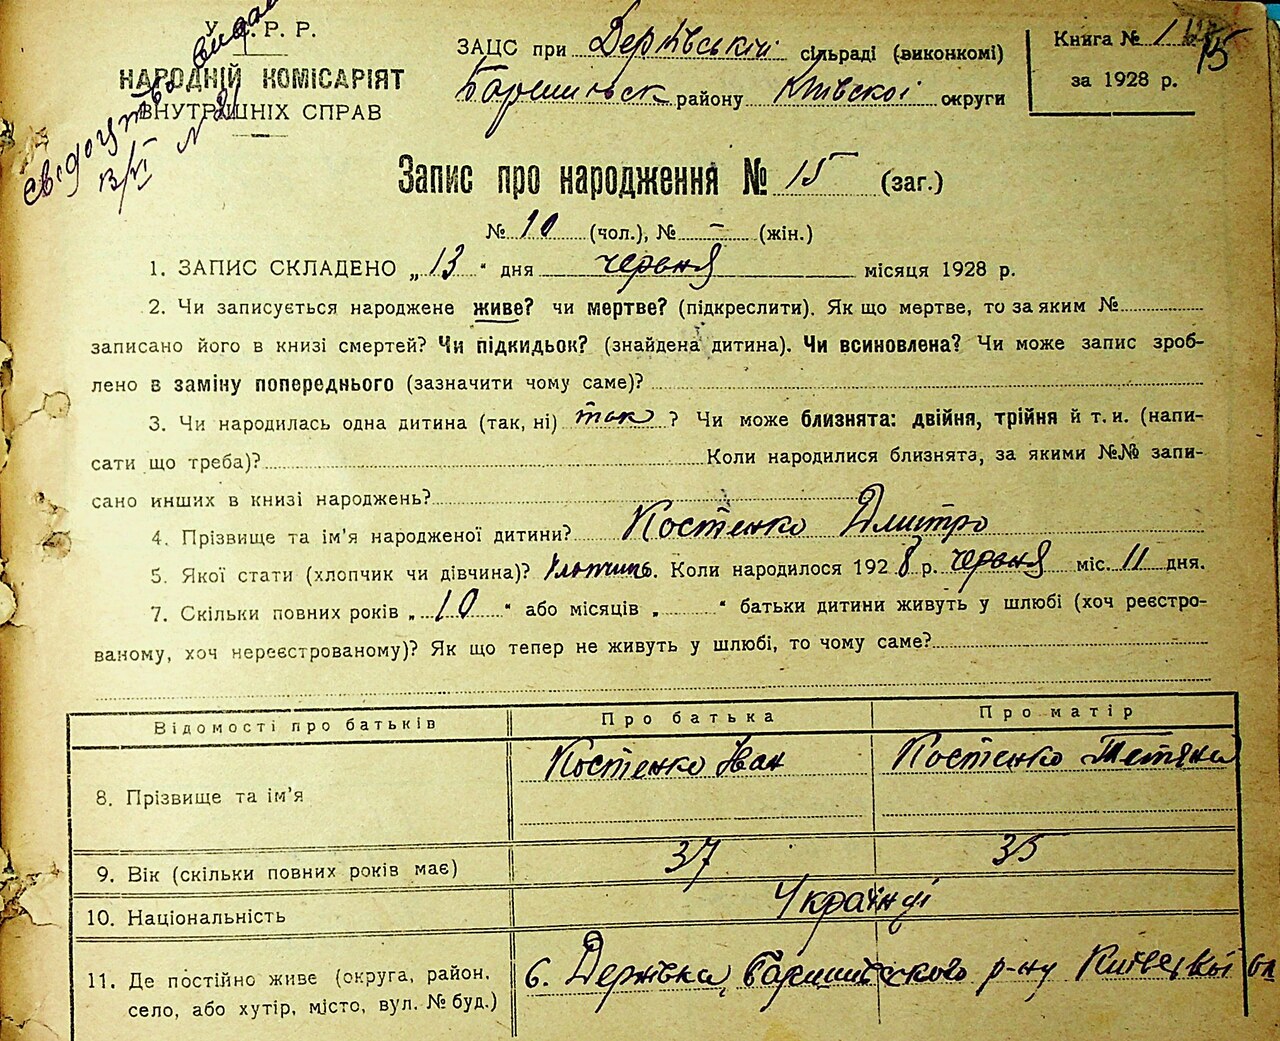 У. Р. Р.
НАРОДНІЙ КОМІСАРІЯТ
ВНУТРІШНІХ СПРАВ
№ 21
ЗАЦС при сільраді (виконкомі)
району Київскої округи
Книга № 1
за 1928 р.
15
Запис про народження № 15 (заг.)
№ 10 (чол.), № – (жін.)
1. ЗАПИС СКЛАДЕНО „ 13 " дня червня місяця 1928 р.
2. Чи записується народжене живе? чи мертве? (підкреслити). Як що мертве, то за яким №
записано його в книзі смертей? Чи підкидьок? (знайдена дитина). Чи всиновлена? Чи може запис зроб-
лено в заміну попереднього (зазначити чому саме)?
3. Чи народилась одна дитина (так, ні) так ? Чи може близнята: двійня, трійня й т. и. (напи-
сати що треба)? Коли народилися близнята, за якими №№ запи-
сано инших в книзі народжень?
4. Прізвище та ім'я народженої дитини? Костенко Дмитро
5. Якої стати (хлопчик чи дівчина)? Хлопчик. Коли народилося 1928 р. червня міс. 11 дня.
7. Скільки повних років „ 10 " або місяців „ " батьки дитини живуть у шлюбі (хоч реєстро-
ваному, хоч нереєстрованому)? Як що тепер не живуть у шлюбі, то чому саме?
Відомості про батьків Про батька Про матір
8. Прізвище та ім'я Костенко Іван Костенко Тетяна
9. Вік (скільки повних років має) 37 35
10. Національність Українці
11. Де постійно живе (округа, район,
село, або хутір, місто, вул. № буд.)
с. р-ну